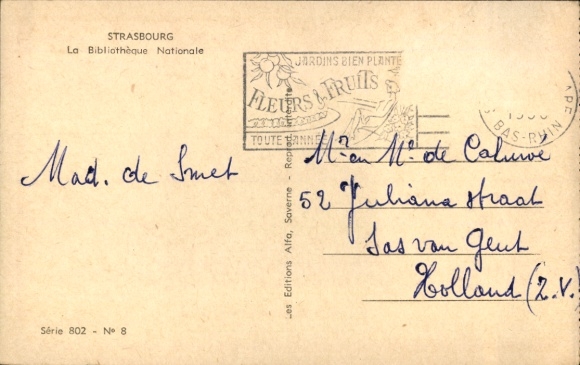 STRASBOURG
La Bibliothèque Nationale
JARDINS BIEN PLANTÉ
FLEURS & FRUITS
TOUTE L'ANNÉE
BAS-RHIN
Mad. de Smet
Mr en Me de Caluwé
52 Juliana straat
Sas van Gent
Holland (Z.V.)
Les Editions Alfa, Saverne - Reprod. interdite
Série 802 - No 8